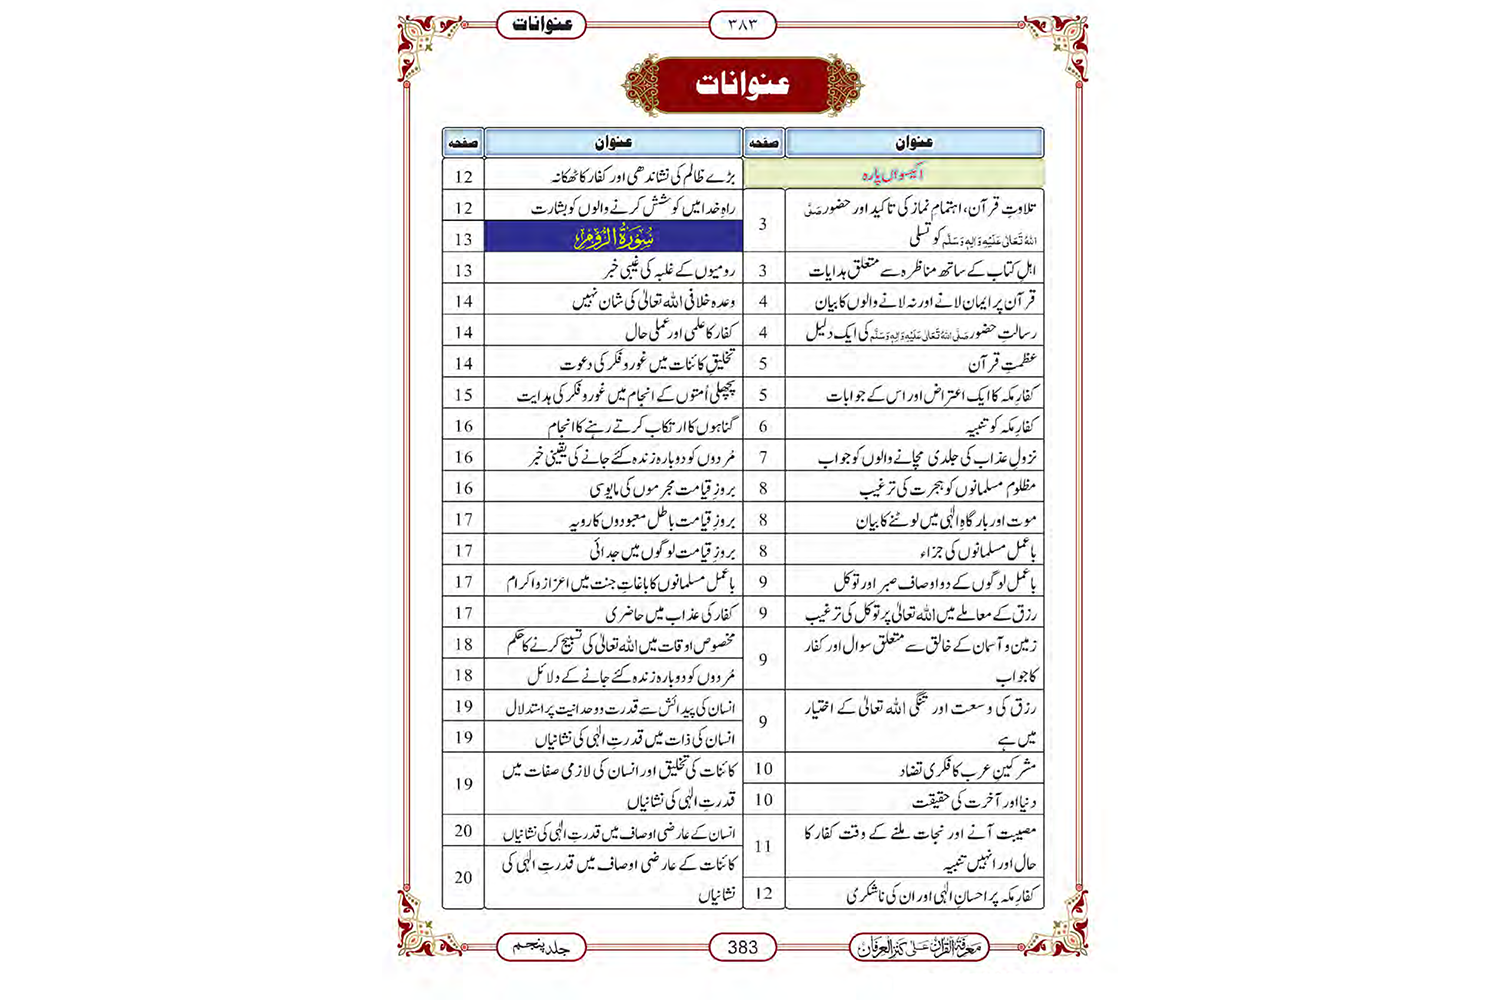 عنوانات
۳۸۳
عنوانات
عنوان
صفحہ
اکیسواں پارہ
تلاوتِ قرآن، اہتمامِ نماز کی تاکید اور حضور صَلَّی
اللہُ تَعَالٰی عَلَیْہِ وَاٰلِہٖ وَسَلَّم کو تسلی
3
اہلِ کتاب کے ساتھ مناظرہ سے متعلق ہدایات
3
قرآن پر ایمان لانے اور نہ لانے والوں کا بیان
4
رسالتِ حضور صَلَّی اللہُ تَعَالٰی عَلَیْہِ وَاٰلِہٖ وَسَلَّم کی ایک دلیل
4
عظمتِ قرآن
5
کفارِ مکہ کا ایک اعتراض اور اس کے جوابات
5
کفارِ مکہ کو تنبیہ
6
نزولِ عذاب کی جلدی مچانے والوں کو جواب
7
مظلوم مسلمانوں کو ہجرت کی ترغیب
8
موت اور بارگاہِ الٰہی میں لوٹنے کا بیان
8
باعمل مسلمانوں کی جزاء
8
باعمل لوگوں کے دو اوصاف صبر اور توکل
9
رزق کے معاملے میں اللہ تعالیٰ پر توکل کی ترغیب
9
زمین و آسمان کے خالق سے متعلق سوال اور کفار
کا جواب
9
رزق کی وسعت اور تنگی اللہ تعالیٰ کے اختیار
میں ہے
9
مشرکینِ عرب کا فکری تضاد
10
دنیا اور آخرت کی حقیقت
10
مصیبت آنے اور نجات ملنے کے وقت کفار کا
حال اور انہیں تنبیہ
11
کفارِ مکہ پر احسانِ الٰہی اور ان کی ناشکری
12
عنوان
صفحہ
بڑے ظالم کی نشاندہی اور کفار کا ٹھکانہ
12
راہِ خدا میں کوشش کرنے والوں کو بشارت
12
سُوْرَۃُ الرُّوْمِ
13
رومیوں کے غلبہ کی غیبی خبر
13
وعدہ خلافی اللہ تعالیٰ کی شان نہیں
14
کفار کا علمی اور عملی حال
14
تخلیقِ کائنات میں غور و فکر کی دعوت
14
پچھلی اُمتوں کے انجام میں غور و فکر کی ہدایت
15
گناہوں کا ارتکاب کرتے رہنے کا انجام
16
مُردوں کو دوبارہ زندہ کئے جانے کی یقینی خبر
16
بروزِ قیامت مجرموں کی مایوسی
16
بروزِ قیامت باطل معبودوں کا رویہ
17
بروزِ قیامت لوگوں میں جدائی
17
باعمل مسلمانوں کا باغاتِ جنت میں اعزاز و اکرام
17
کفار کی عذاب میں حاضری
17
مخصوص اوقات میں اللہ تعالیٰ کی تسبیح کرنے کا حکم
18
مُردوں کو دوبارہ زندہ کئے جانے کے دلائل
18
انسان کی پیدائش سے قدرت و وحدانیت پر استدلال
19
انسان کی ذات میں قدرتِ الٰہی کی نشانیاں
19
کائنات کی تخلیق اور انسان کی لازمی صفات میں
قدرتِ الٰہی کی نشانیاں
19
انسان کے عارضی اوصاف میں قدرتِ الٰہی کی نشانیاں
20
کائنات کے عارضی اوصاف میں قدرتِ الٰہی کی
نشانیاں
20
معرفۃ القرآن علیٰ کنز العرفان
383
جلد پنجم